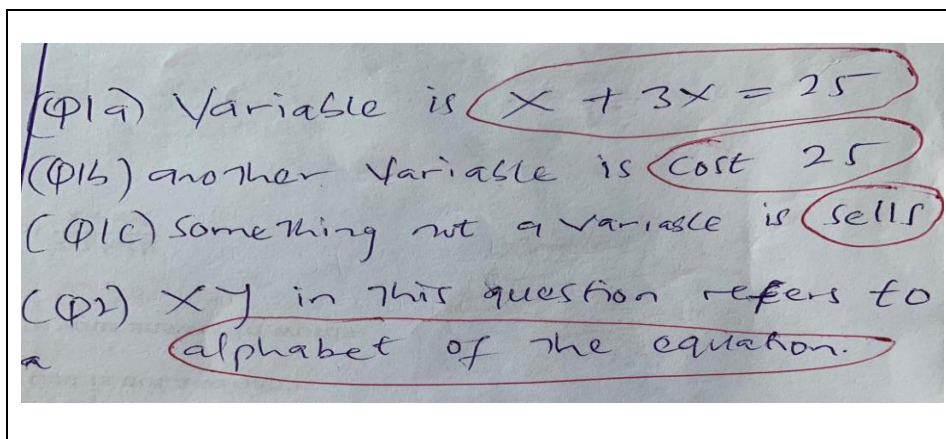 (Q1a) Variable is x + 3x = 25
(Q1b) another Variable is cost 25
(Q1c) Something not a variable is sells
(Q2) XY in this question refers to
a alphabet of the equation.